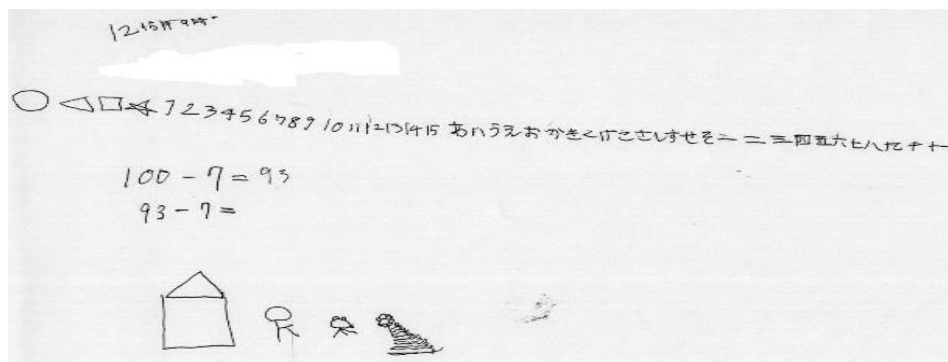 1 2 3 4 5 6 7 8 9 10 11 12 13 14 15 あいうえおかきくけこさしすせそ一二三四五六七八九十十一
100 - 7 = 93
93 - 7 =